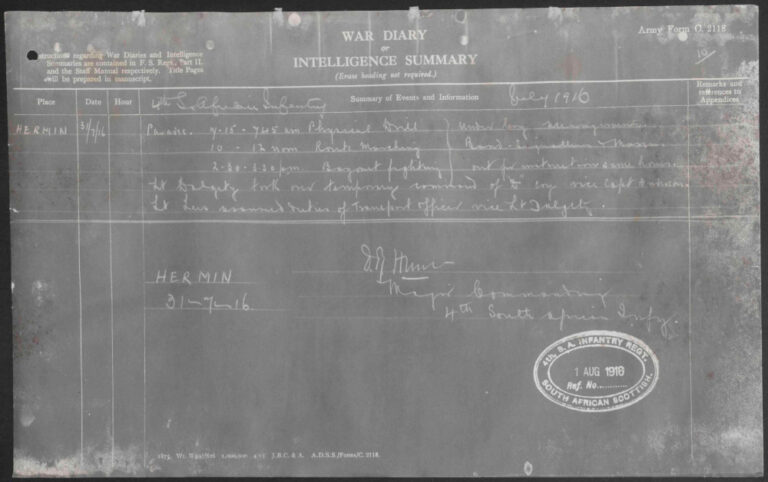 Army Form C. 2118
WAR DIARY
or
INTELLIGENCE SUMMARY
(Erase heading not required.)
Instructions regarding War Diaries and Intelligence
Summaries are contained in F. S. Regs., Part II.
and the Staff Manual respectively. Title Pages
will be prepared in manuscript.
10
4th S. African Infantry
July 1916
Place
Date
Hour
Summary of Events and Information
Remarks and
references to
Appendices
HERMIN 31/7/16 Parades. 7.15 - 7.45 am Physical Drill } Under Coy arrangements
10 - 12 noon Route Marching } Band, Signallers &
2.30 - 3.30 pm. Bayonet fighting } out for instruction same hours.
Lt Dalgety took over temporary command of "D" coy vice Capt
Lt assumed duties of Transport Officer vice Lt Dalgety.
HERMIN
31-7-16
Major Commanding
4th South African Infy.
4th. S. A. INFANTRY REGT.
1 AUG 1916
Ref. No.
SOUTH AFRICAN SCOTTISH.
J.B.C. & A. A.D.S.S./Forms/C. 2118.